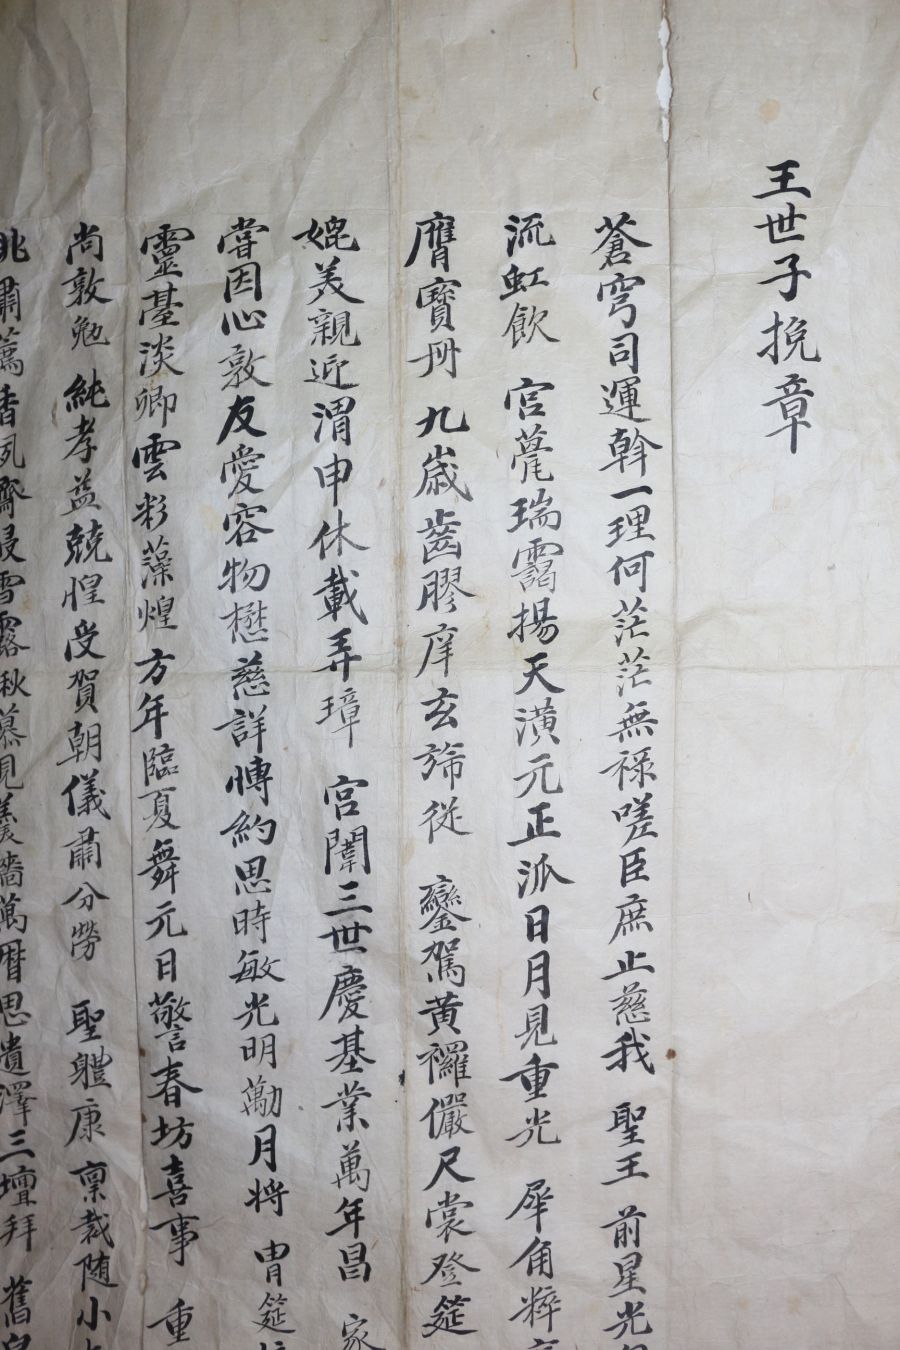 王世子挽章
蒼穹司運斡一理何茫茫無祿嗟臣庶止慈我 聖王 前星光
流虹飮 宮薨瑞靄揚天潢元正派日月見重光 犀角粹
膺寶冊 九歲齒膠庠玄旂從 鑾駕黃襹儼尺裳登筵
媲美親近渭申休載弄璋 宮闈三世慶基業萬年昌 家
嘗因心敦友愛容物懋慈詳博約思時敏光明勵月將 冑筵
靈臺淡卿雲彩藻煌方年臨夏舞元日警春坊喜事 重
尚敦勉 純孝益兢惶受賀朝儀肅分勞 聖體康 稟裁隨小
肅薦香夙齋浸雪露秋慕見羹墻萬曆思遺澤三壇拜 舊